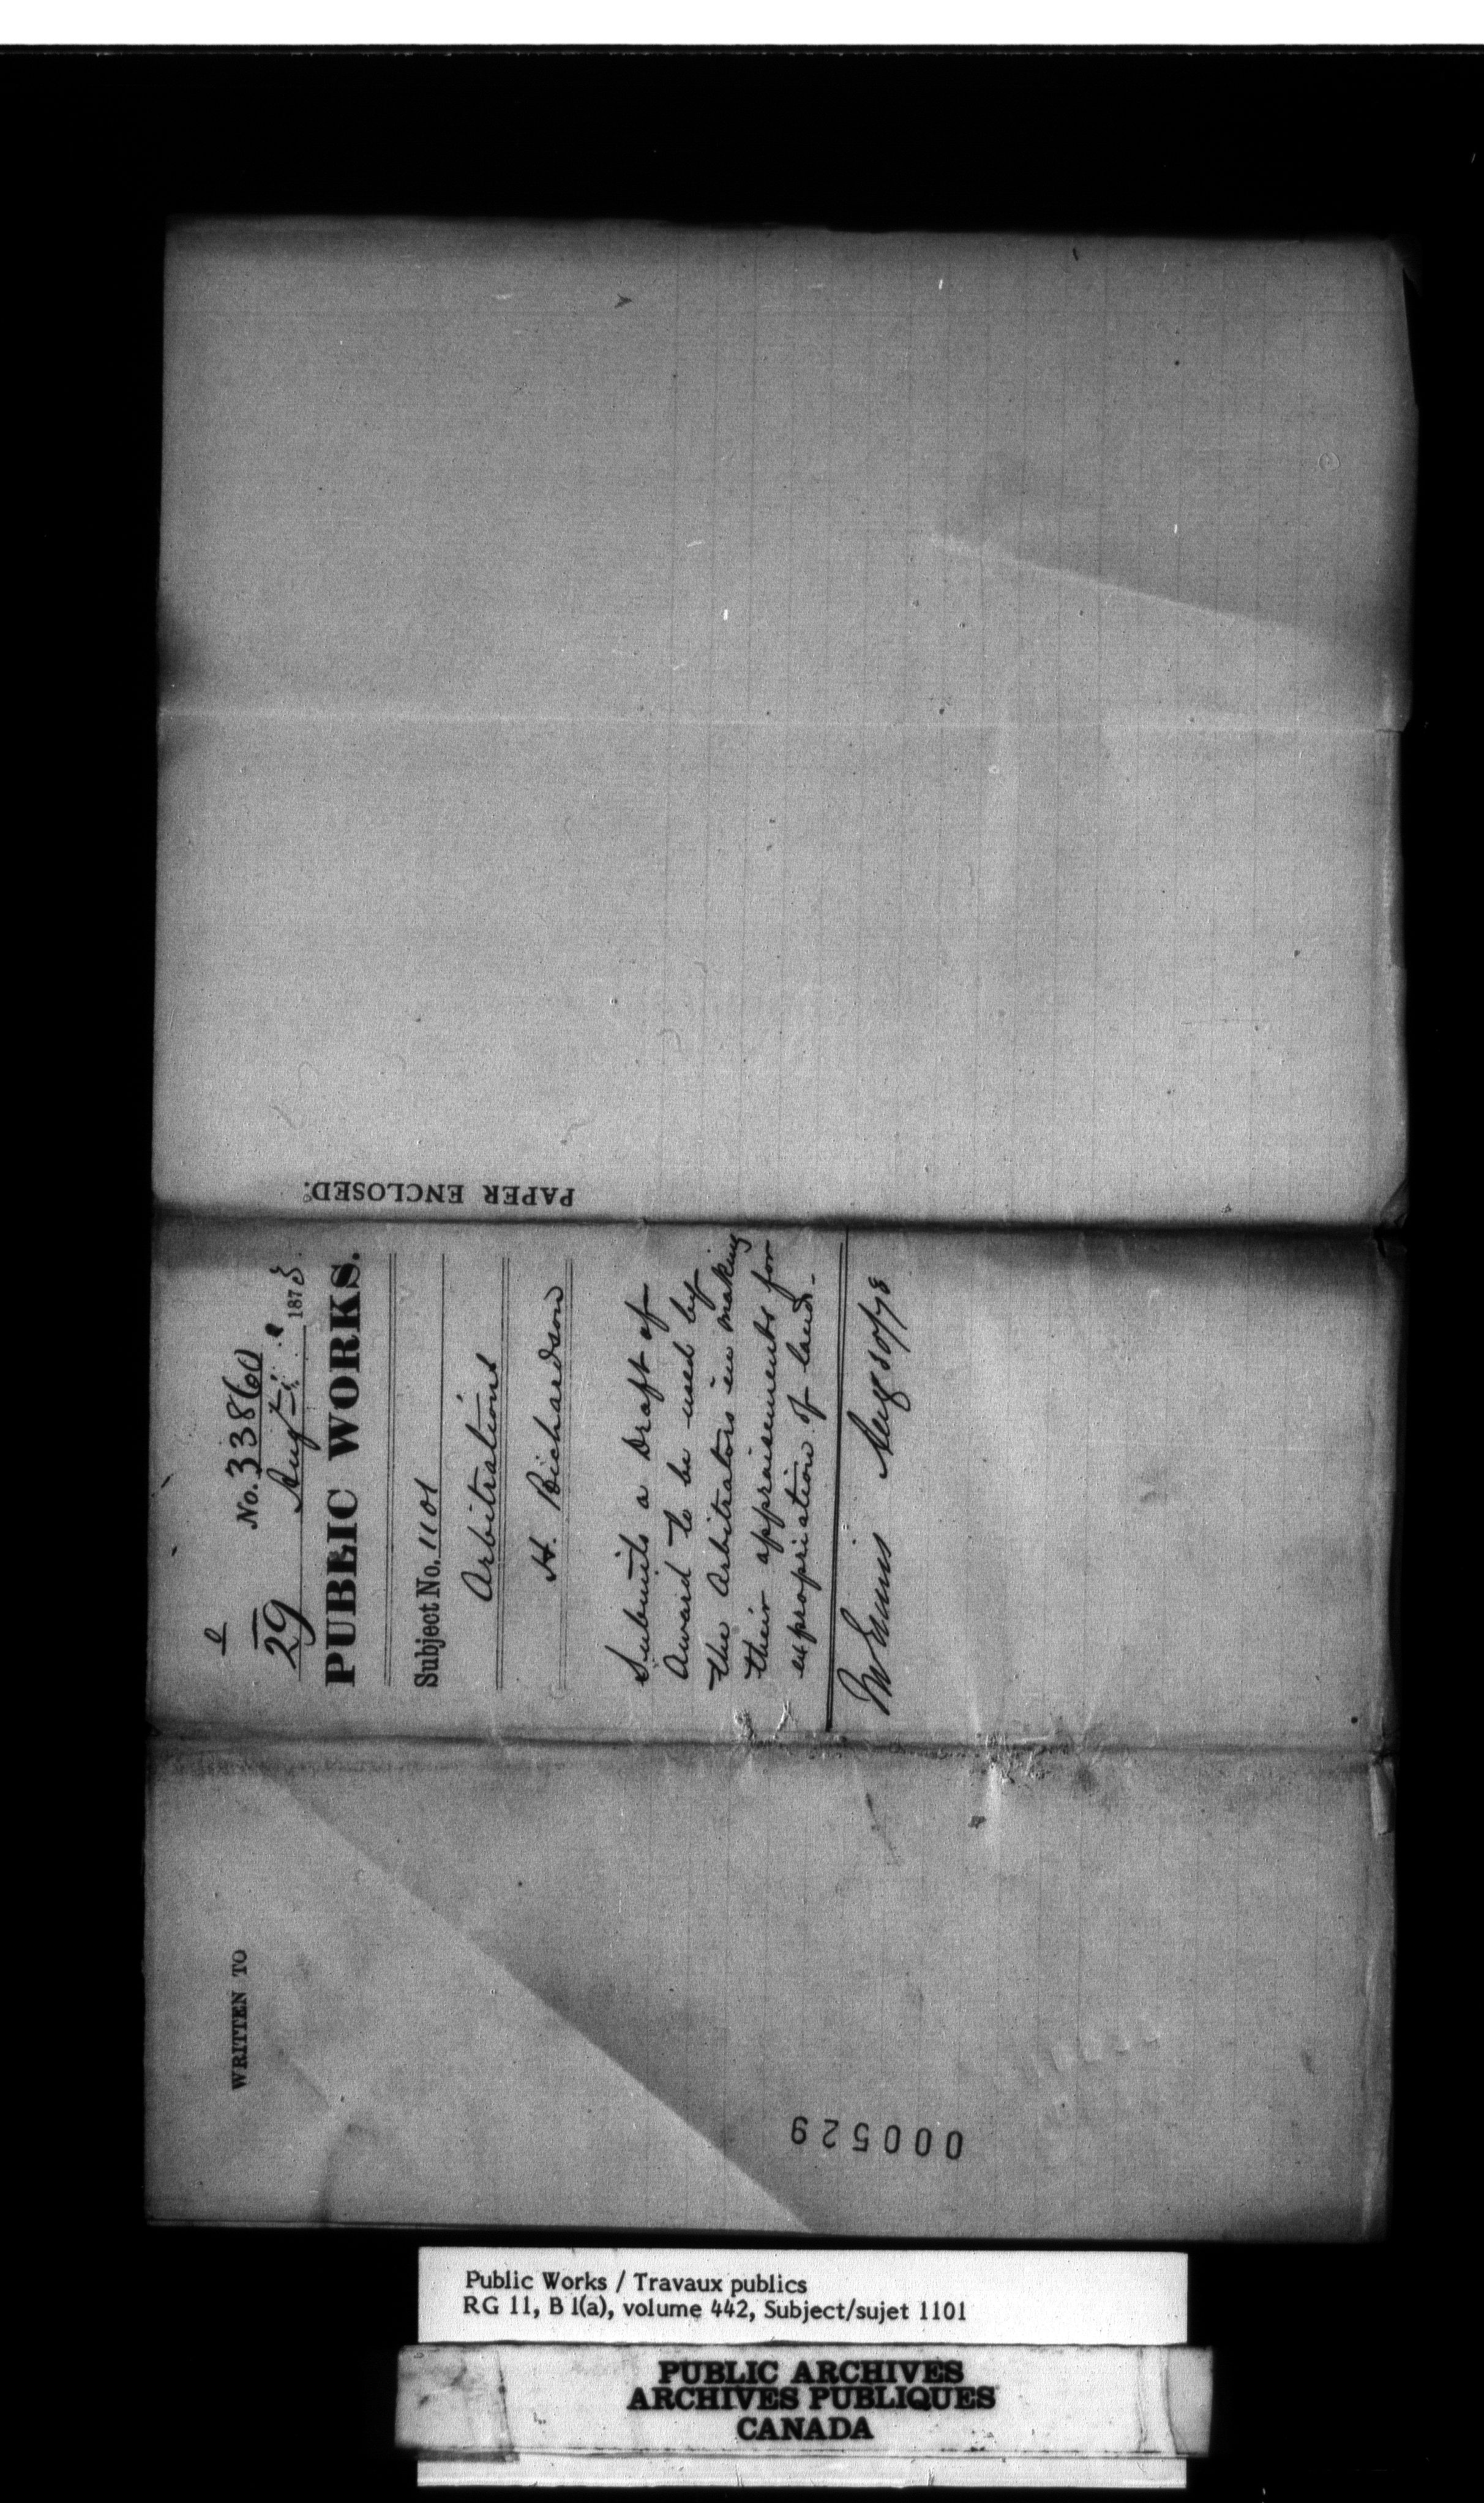 PAPER ENCLOSED.
No. 33860
29 Augt 1873.
PUBLIC WORKS.
Subject No. 1101
Arbitrations
H. Richardson
Submits a Draft of
Award to be used by
the Arbitrators in making
their appraisements for
expropriation of land.-
WRITTEN TO
000529
Public Works / Travaux publics
RG 11, B 1(a), volume 442, Subject/sujet 1101
PUBLIC ARCHIVES
ARCHIVES PUBLIQUES
CANADA